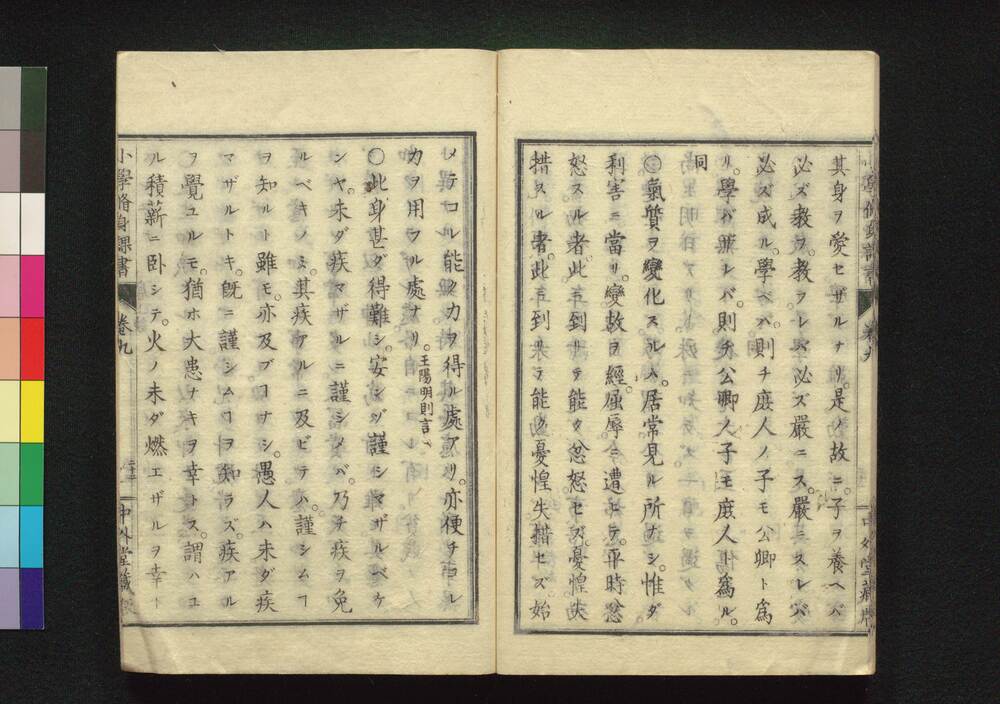 其身ヲ愛セザルナリ。是ノ故ニ。子ヲ養ヘバ
必ズ教ヲ。教フレバ必ズ嚴ニス。嚴ニスレバ
必ズ成ル。學ベバ則チ庶人ノ子モ公卿ト爲
ル。學バザレバ。則チ公卿ノ子モ庶人ト爲ル。
同
○氣質ヲ變化スルハ。居常見ル所ナシ。惟ダ
利害ニ當リ。變故ヲ經。屈辱ニ遭ヒテ。平時忿
怒スル者。此ニ到リテ能ク忿怒セズ。憂惶失
措スル者。此ニ到リテ能ク憂惶失措セズ。始
メテコレ能ク力ヲ得ル處アリ。亦便チコレ
力ヲ用フル處ナリ。王陽明則言
○此身甚ダ得難シ。安ンゾ謹シマザルベケ
ンヤ。未ダ疾マザルニ謹シメバ。乃チ疾ヲ免
ルベキノミ。其疾アルニ及ビテハ。謹シムヿ
ヲ知ルト雖モ。亦及ブヿナシ。愚人ハ未ダ疾
マザルトキ。既ニ謹シムヿヲ知ラズ。疾アル
ヲ覺ユルモ。猶ホ大患ナキヲ幸トス。謂ハユ
ル積薪ニ卧シテ。火ノ未ダ燃エザルヲ幸ト
小學脩身課書 卷九 中外堂藏